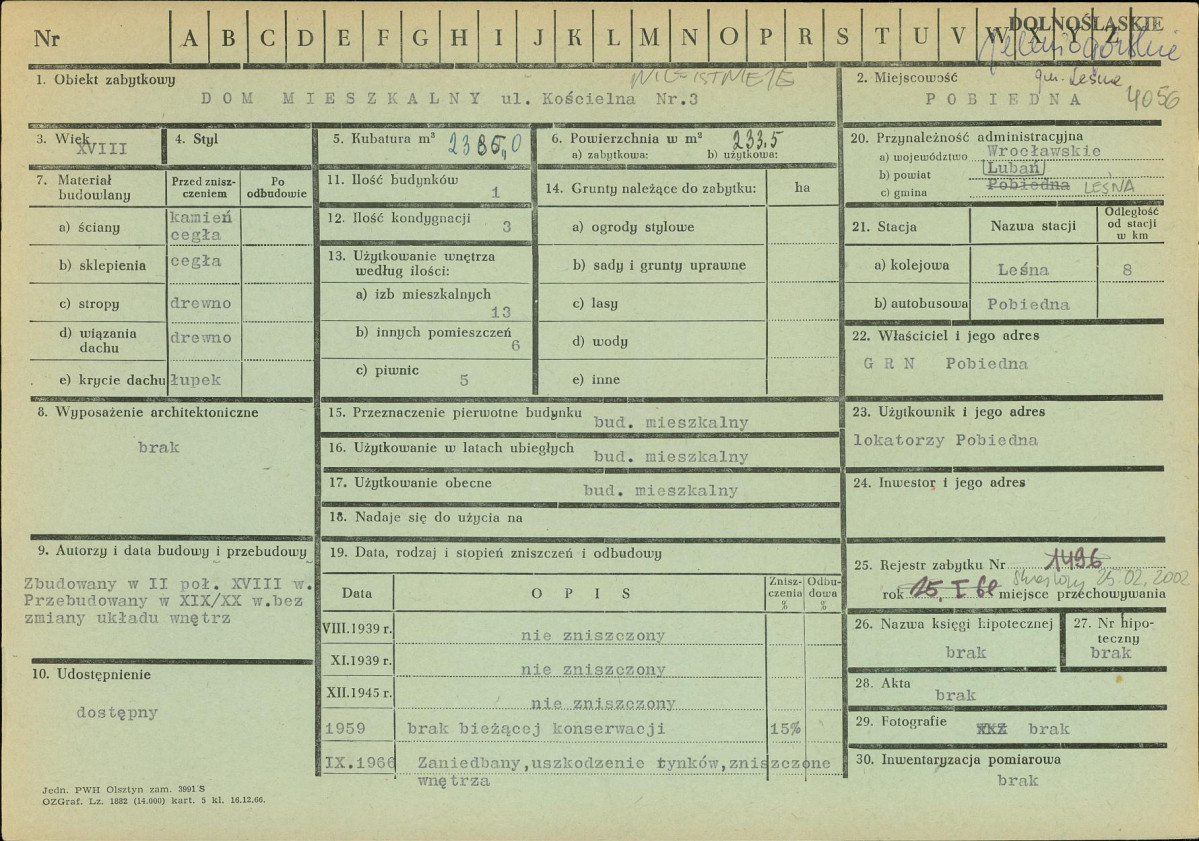 Nr A B C D E F G H I J K L M N O P R S T U V W X Y Z
DOLNOŚLĄSKIE
Jeleniogórskie
1. Obiekt zabytkowy
NIE ISTNIEJE
DOM MIESZKALNY ul. Kościelna Nr.3
2. Miejscowość
gm. Leśna
POBIEDNA
4056
3. Wiek
XVIII
4. Styl
5. Kubatura m³
2385,0
6. Powierzchnia w m²
233,5
a) zabytkowa: b) użytkowa:
20. Przynależność administracyjna
a) województwo Wrocławskie
b) powiat Lubań
c) gmina Pobiedna LEŚNA
7. Materiał budowlany
Przed znisz-
czeniem
Po
odbudowie
a) ściany kamień
cegła
b) sklepienia cegła
c) stropy drewno
d) wiązania
dachu drewno
e) krycie dachu łupek
11. Ilość budynków 1
12. Ilość kondygnacji 3
13. Użytkowanie wnętrza
według ilości:
a) izb mieszkalnych
13
b) innych pomieszczeń
6
c) piwnic 5
14. Grunty należące do zabytku: ha
a) ogrody stylowe
b) sady i grunty uprawne
c) lasy
d) wody
e) inne
21. Stacja Nazwa stacji
Odległość
od stacji
w km
a) kolejowa Leśna 8
b) autobusowa Pobiedna
22. Właściciel i jego adres
G R N Pobiedna
8. Wyposażenie architektoniczne
brak
15. Przeznaczenie pierwotne budynku bud. mieszkalny
16. Użytkowanie w latach ubiegłych bud. mieszkalny
17. Użytkowanie obecne bud. mieszkalny
18. Nadaje się do użycia na
23. Użytkownik i jego adres
lokatorzy Pobiedna
24. Inwestor i jego adres
9. Autorzy i data budowy i przebudowy
Zbudowany w II poł. XVIII w.
Przebudowany w XIX/XX w.bez
zmiany układu wnętrz
10. Udostępnienie
dostępny
19. Data, rodzaj i stopień zniszczeń i odbudowy
Data O P I S
Znisz-
czenia
%
Odbu-
dowa
%
VIII.1939 r. nie zniszczony
XI.1939 r. nie zniszczony
XII.1945 r. nie zniszczony
1959 brak bieżącej konserwacji 15%
IX.1966 Zaniedbany,uszkodzenie tynków,zniszczone
wnętrza
25. Rejestr zabytku Nr 1496
Skreślony 25.02.2002
rok 15. I 66 miejsce przechowywania
26. Nazwa księgi hipotecznej
brak
27. Nr hipo-
teczny
brak
28. Akta
brak
29. Fotografie XXX brak
30. Inwentaryzacja pomiarowa
brak
Jedn. PWH Olsztyn zam. 3991 S
OZGraf. Lz. 1882 (14.000) kart. 5 kl. 16.12.66.